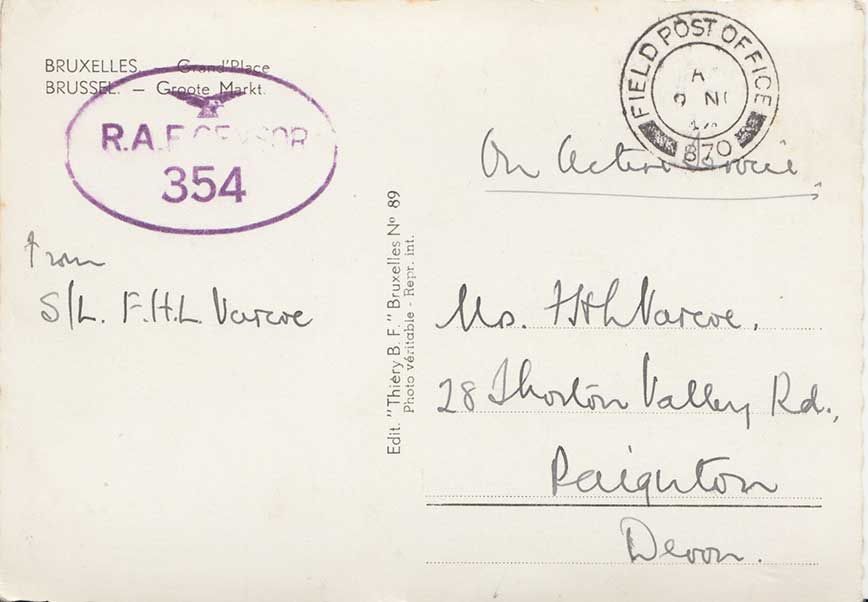 BRUXELLES — Grand'Place
BRUSSEL. — Groote Markt.
R.A.F. CENSOR
354
From
S/L. F.H.L. Varcoe
Edit. "Thiéry B. F." Bruxelles Nº 89
Photo véritable - Repr. int.
FIELD POST OFFICE
A
9 NO
870
On Active Service
Mrs. FHL Varcoe,
28 Shorton Valley Rd.,
Paignton
Devon.